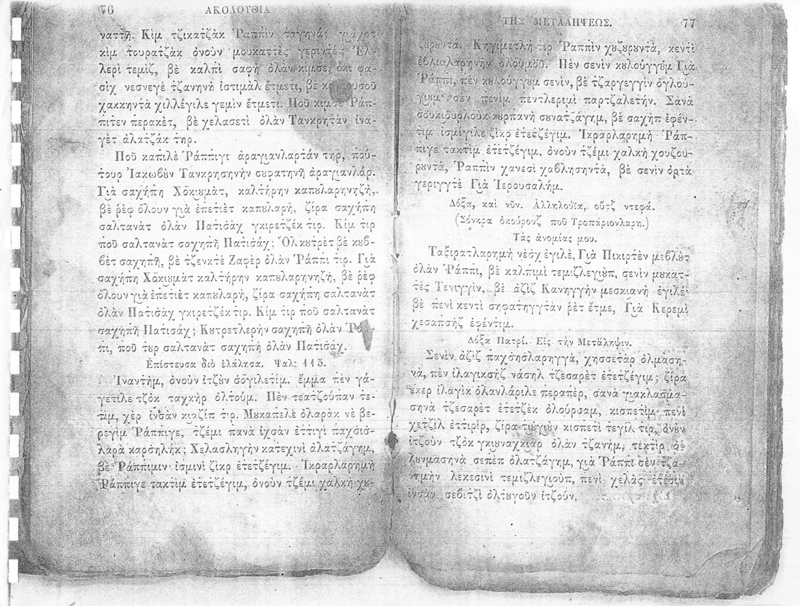 76 ΑΚΟΛΟΥΘΙΑ
ναττῆ. Κὶμ τζικατζὰκ Ῥαππὶν ταγηνὰ; γιάχοτ
κὶμ τουρατζὰκ ὀνοὺν μουκαττὲς γερινπὲ; Ἐλ-
λερὶ τεμὶζ, βὲ καλπὶ σαφῆ ὀλὰν κιμσὲ, ὀκὶ φα-
σὶχ νεσνεγὲ τζανηνὴ ἱστιμὰλ ἐτμετὶ, βὲ
χακκηντὰ χιλλέγιλε γεμὶν ἐτμετί. Ποῦ κιμσὲ Ῥάπ-
πιτεν περακὲτ, βὲ χελασετὶ ὀλὰν Τανκρηνὰν ἰνα-
γὲτ ἀλατζὰκ τηρ.
Ποῦ καπιλὲ Ῥάππιγι ἀραγιανλαρτὰν τηρ, ποῦ-
τουρ Ἰακωβοὺν Τανκρησηνὴν σουφατηνὴ ἀραγιανλάρ.
Γιὰ σαχήπη Χὀκιοῦμὰτ, καλτήρην καπουλαρηνηζῆ,
βὲ ῥὲφ ὀλουν γιὰ ἐπετιὲτ καπουλαρῆ, ζίρα σαχήπη
σαλτανὰτ ὀλὰν Πατισὰχ γκιρετζὲκ τιρ. Κὶμ τιρ
ποῦ σαλτανὰτ σαχηπῆ Πατισάχ; Ὀλ κυτρὲτ βὲ κυβ-
βὲτ σαχηπῆ, βὲ τζενκτὲ Ζαφὲρ ὀλὰν Ῥάππι τιρ. Γιὰ
σαχήπη Χὀκιοῦμὰτ καλτήρην καπουλαρηνηζῆ, βὲ ῥὲφ
ὀλουν γιὰ ἐπετιὲτ καπουλαρῆ, ζίρα σαχήπη σαλτανὰτ
ὀλὰν Πατισὰχ γκιρετζὲκ τιρ. Κὶμ τιρ ποῦ σαλτανὰτ
σαχηπῆ Πατισάχ; Κυτρετλερὴν σαχηπῆ ὀλὰν Ῥάπ-
πι, ποῦ τουρ σαλτανὰτ σαχηπῆ ὀλὰν Πατισάχ.
Ἐπίστευσα διὸ ἐλάλησα. Ψαλ: 115.
Ἰναντήμ, ὀνοὺν ἰτζοὺν σὀγιλετίμ. ἔμμα πὲν γά-
γετιλε τζὸκ ταχκὴρ ὀλτούμ. Πὲν τεατζοὺπὰν τε-
τίμ, χὲρ ἰνσὰν κιαζὶπ τιρ. Μυκαπελὲ ὀλαρὰκ νὲ βε-
ρεγὶμ Ῥάππιγε, τζέμι πανὰ ἰχσὰν ἐττιγὶ παχσισ-
λαρὰ καρσηλήκ; Χελασληγὴν κατεχινὶ ἀλατζάγημ,
βὲ Ῥάππιμιν ἰσμινὶ ζὶκρ ἐτετζέγιμ. Ἰκραρλαρημὴ
Ῥάππιγε τακτὶμ ἐτετζέγιμ, ὀνοὺν τζέμι χαλκὴ χυ-
ΤΗΣ ΜΕΤΑΛΗΨΕΩΣ. 77
ζυρουντά. Κηγιμετλὴ τιρ Ῥαππὶν χυζυρουντὰ, κεντὶ
ἐβλιαλαρηνὴν ὀλουμοῦ. Πὲν σενὶν κυλουγγοὺμ Γιὰ
Ῥάππι, πὲν κυλουγγοὺμ σενὶν, βὲ τζαργεγγὶν ὀγλοῦ-
γιοῦμ σὲν πενὶμ πεντλεριμὶ παρτζαλετήν. Σανὰ
σουκιουρλοὺκ κυρπανὴ συνατζάγημ, βὲ σαχὴπ ἐφέν-
τιμ ἰσμίγιλε ζὶκρ ἐτεζέγιμ. Ἰκραρλαρημὴ Ῥάπ-
πιγε τακτὶμ ἐτετζέγιμ. ὀνοὺν τζέμι χαλκὴ χουζου-
ρουντὰ, Ῥαππὶν χανεσὶ χαβλησηντὰ, βὲ σενὶν ὀρτὰ
γεριγγτὲ Γιὰ Ἱερουσαλήμ.
Δόξα, καὶ νῦν. Ἀλληλούϊα, οὒτζ ντεφά.
(Σὀνκρα ὀκούρουζ ποῦ Τροπάριονλαρη.)
Τὰς ἀνομίας μου.
Ταξιρατλαρημὴ νεσχ ἐγιλὲ, Γιὰ Πικιρτὲν μεβλοὺτ
ὀλὰν Ῥάππι, βὲ καλπιμὶ τεμιζλεγιοὺπ, σενὶν μυκατ-
τὲς Τενιγγὶν, βὲ ἀζὶζ Κανηγγὴν μεσκιανὴ ἐγιλὲ·
βὲ πενὶ κεντὶ σηφατηγγτὰν ῥὲτ ἔτμε, Γιὰ Κερεμὶ
χεσαπσὴζ ἐφέντιμ.
Δόξα Πατρί. Εἰς τὴν Μετάληψιν.
Σενὶν ἀζὶζ παχσησλαρηγγὰ, χησσετὰρ ὀλμασή-
νὰ, πὲν ἰλαγικσὴζ νάσηλ τζεσαρὲτ ἐτετζέγιμ; ζίρα
ἔκερ ἰλαγὶκ ὀλανλάριλε περαπὲρ, σανὰ γιακλασμα-
σηνὰ τζεσαρὲτ ἐτετζὲκ ὀλούρσαμ, κισπετὶμ πενὶ
χετζὶλ ἐττιρὶρ, ζίρα κισπετὶ τεγὶλ τιρ, ὀνοὺν
ἰτζοὺν τζὸκ γκιουναχκιὰρ ὀλὰν τζανήμ, τεκτὶρ ὀ-
λουνμασηνὰ σεπὲπ ὀλατζάγημ, γιὰ Ῥάππι σὲν τζα-
νημὴν λεκεσινὶ τεμιζλεγιοὺπ, πενὶ χελὰς
ἰνσὰν σεβιτζὶ ὀλτυγοὺν ἰτζούν.